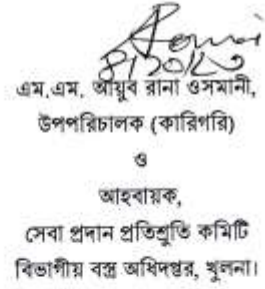 এম.এম. আয়ুব রানা ওসমানী,
উপপরিচালক (কারিগরি)
ও
আহবায়ক,
সেবা প্রদান প্রতিশ্রুতি কমিটি
বিভাগীয় বস্ত্র অধিদপ্তর, খুলনা।